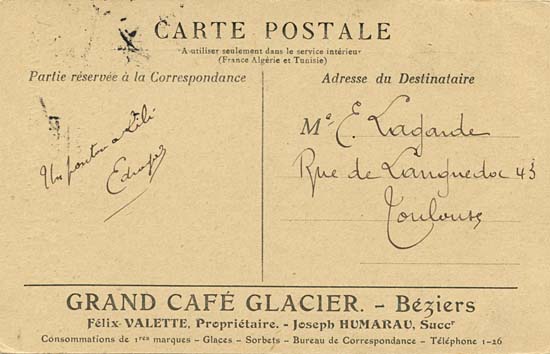 CARTE POSTALE
A utiliser seulement dans le service intérieur
(France Algérie et Tunisie)
Partie réservée à la Correspondance
Adresse du Destinataire
Un a Lili
Me E. Lagarde
Rue de Languedoc 43
Toulouse
GRAND CAFÉ GLACIER. - Béziers
Félix VALETTE, Propriétaire. - Joseph HUMARAU, Succr
Consommations de 1res marques - Glaces - Sorbets - Bureau de Correspondance - Téléphone 1-26